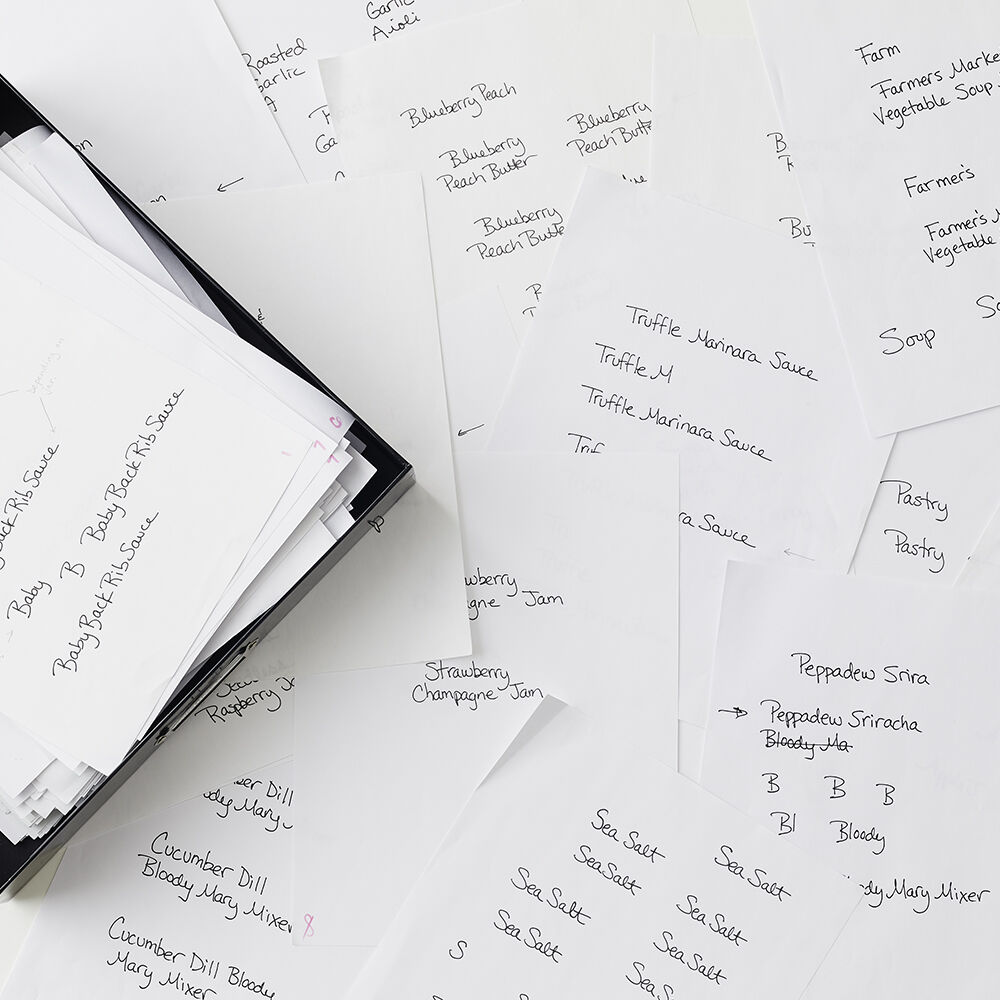 Garlic
Aioli
Roasted
Garlic
Blueberry Peach
Blueberry
Peach Butter
Blueberry
Peach Butter
Blueberry
Peach Butte
Farm
Farmers Marke
Vegetable Soup
Farmer's
Farmer's M
Vegetable
Soup
So
B
Bu
Truffle Marinara Sauce
Truffle M
Truffle Marinara Sauce
Truf
ra Sauce
Pastry
Pastry
depending on
Back Rib Sauce
Baby
B
Baby Back Rib Sauce
Baby Back Rib Sauce
wberry
agne Jam
Strawberry
Champagne Jam
Raspberry Ja
er Dill
ody Mary
Cucumber Dill
Bloody Mary Mixer
Cucumber Dill Bloody
Mary Mixer
8
Peppadew Srira
Peppadew Sriracha
Bloody Ma
B B B
Bl Bloody
dy Mary Mixer
Sea Salt
Sea Salt
Sea Salt
Sea Salt
S
Sea Salt
Sea Salt
Sea Salt
Sea S